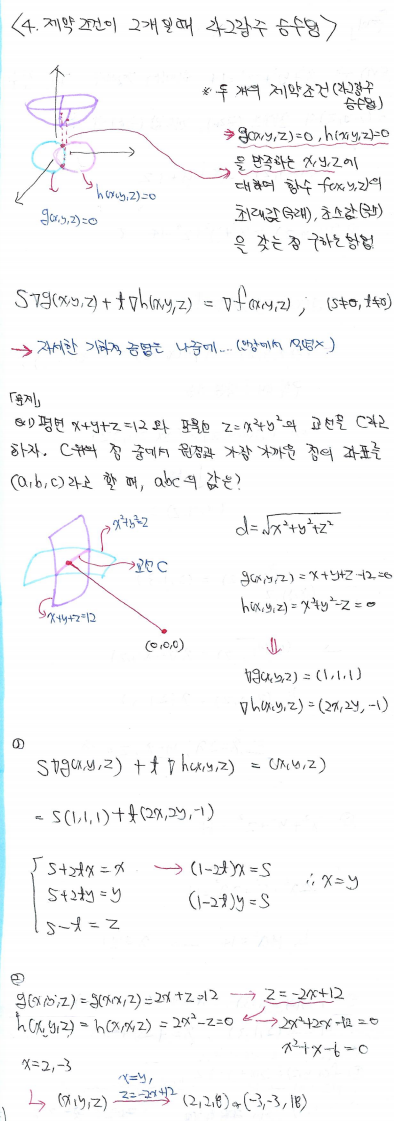 <4. 제약조건이 2개일때 라그랑주 승수법>
* 두 개의 제약조건 (라그랑주 승수법)
→ g(x,y,z)=0, h(x,y,z)=0
을 만족하는 x,y,z에
대하여 함수 f(x,y,z)의
최대값(극대), 최소값(극소)
을 갖는 점 구하는 방법
h(x,y,z)=0
g(x,y,z)=0
s∇g(x,y,z) + t∇h(x,y,z) = ∇f(x,y,z) ; (s≠0, t≠0)
→ 자세한 기하적 증명은 나중에... (
「문제」
ex) 평면 x+y+z=12 와 포물면 z=x²+y²의 교선을 C라고
하자. C위의 점 중에서 원점과 가장 가까운 점의 좌표를
(a,b,c)라고 할 때, abc의 값은?
x²+y²=z
교선 C
x+y+z=12
(0,0,0)
d=√x²+y²+z²
g(x,y,z) = x+y+z-12=0
h(x,y,z) = x²+y²-z=0
⇓
∇g(x,y,z) = (1,1,1)
∇h(x,y,z) = (2x,2y,-1)
①
s∇g(x,y,z) + t∇h(x,y,z) = (x,y,z)
= s(1,1,1)+t(2x,2y,-1)
s+2tx=x → (1-2t)x=s
s+2ty=y (1-2t)y=s ∴ x=y
s-t=z
②
g(x,y,z)=g(x,x,z)=2x+z=12 → z=-2x+12
h(x,y,z)=h(x,x,z)=2x²-z=0 → 2x²+2x-12=0
x²+x-6=0
x=2,-3
↳ (x,y,z) x=y, z=-2x+12 → (2,2,8) or (-3,-3,18)